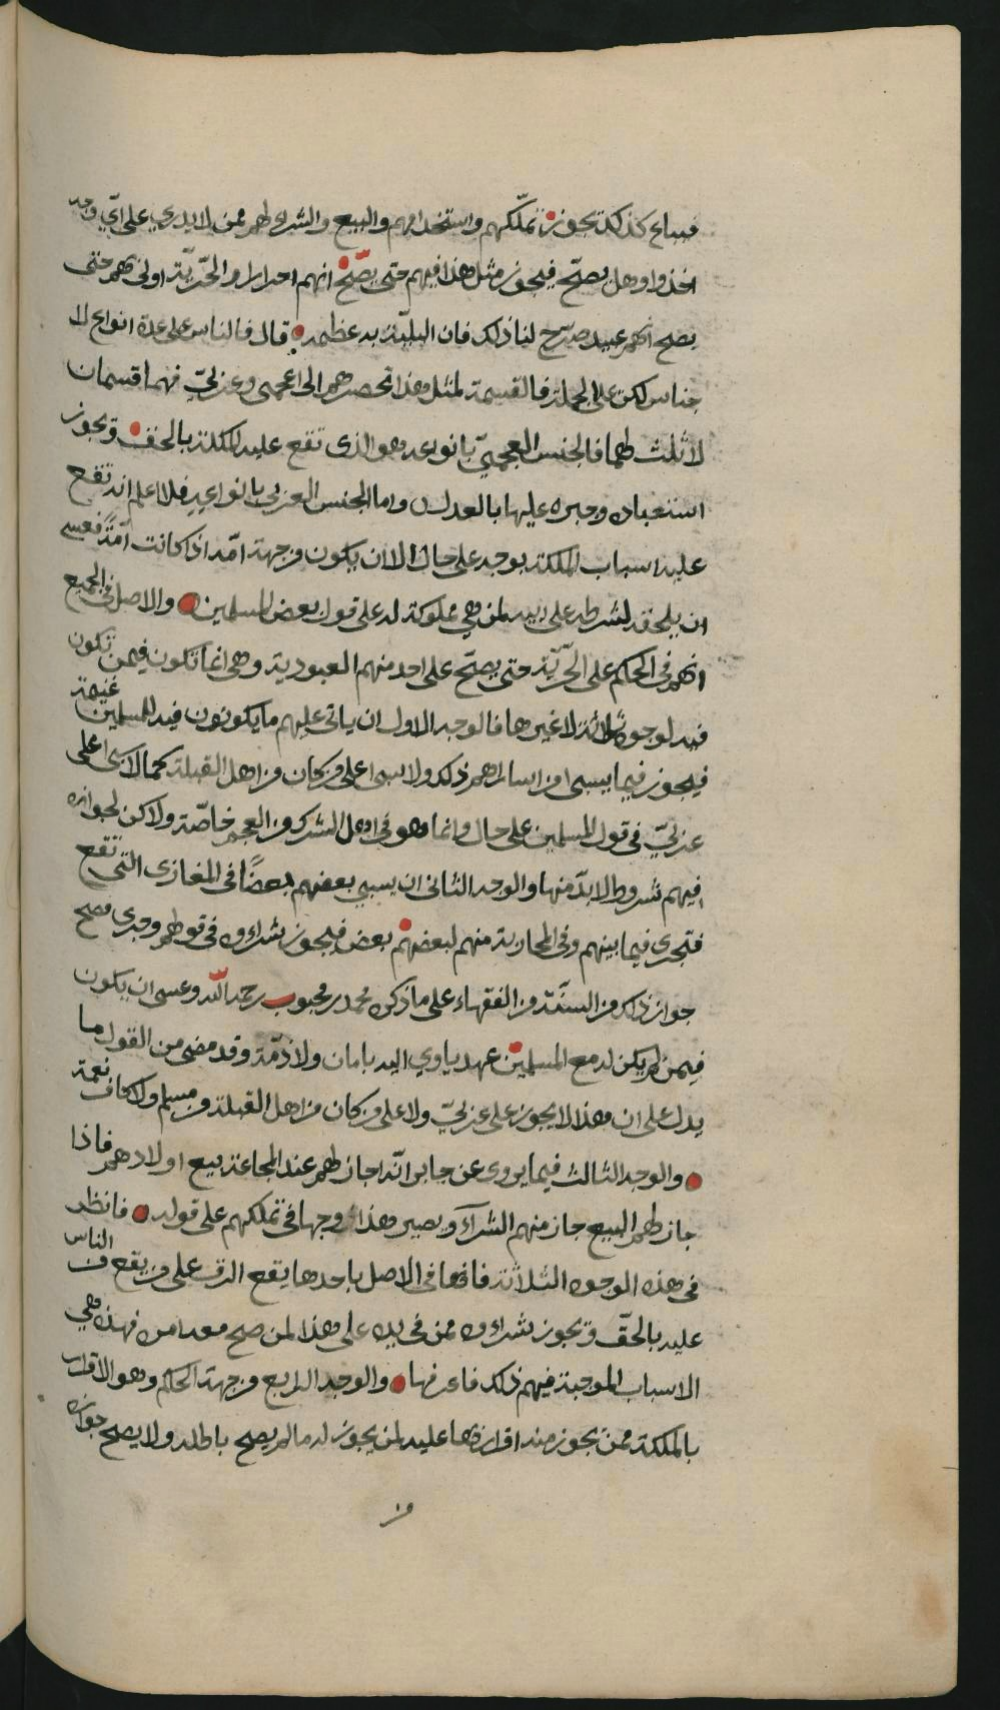 فساع كذلك تجوز تملّكهم واستخدامهم والبيع والشراء لهم ممن لا يدري على اي وجه
اخذوا وهل يصحّ فيجوز مثل هذا فيهم حتى يصّح انهم احرار ام الحريّة اولى بهم حتى
يصح انهم عبيد صرّح لنا ذلك فان البليّة به عظيمه قال فالناس على عدة انواع لا
جناس لكن على الجملة فالقسمة لمثل هذا تحصرهم الى اعجمى وعربيّ فهما قسمان
لا ثالث لهما فالجنس العجميّ بانواعه هو الذى تقع عليه الملكة بالحق ويجوز
استعباده وجبره عليها بالعدل واما الجنس العربي بانواعه فلا اعلم انه تقع
عليه اسباب الملكة بوجه على حال الا ان يكون من جهة امّه اذا كانت أمّةً فعسى
ان يلحقه لشرطه على ابيه لمن هي مملوكة له على قول بعض المسلمين والاصل في الجميع
انهم في الحكم على الحرّيّة حتى يصحّ على احد منهم العبودية وهى انما تكون فيمن تكون
فيه لوجوه ثلاثة لا غيرها فالوجه الاول ان ياتى عليهم ما يكونون فيه للمسلمين غنيمة
فيجوز فيما يسبى من اساراهم ذلك ولا سبى على من كان من اهل القبلة كما لا سبى على
عربيّ في قول المسلمين على حال وانما هو في اهل الشرك من العجم خاصّة ولاكن لجوازه
فيهم شروط لا بدّ منها والوجه الثانى ان يسبي بعضهم بعضًا فى المغازى التى تقع
فتجرى فيما بينهم وفى المحاربة منهم لبعضهم بعض فيجوز شراوه فى قولهم وجدى فصح
جواز ذلك من السنّة من الفقهاء على ما ذكره محمد بن محبوب رحمه اللّه وعسى ان يكون
فيمن لم يكن له مع المسلمين عهد ياوي اليه بامان ولا ذمّة وقد مضى من القول ما
يدل على ان هذا لا يجوز على عربيّ ولا على من كان من اهل القبلة من مسلم ولا كافر نعمة
والوجه الثالث فيما يروى عن جابر انّه اجاز لهم عند المجاعة بيع اولادهم فاذا
جاز لهم البيع جاز منهم الشرآء ويصير هذا وجها فى تملكهم على قوله فانظر
فى هذه الوجوه الثلاثة فانها فى الاصل باحدها يقع الرق على من يقع من الناس
عليه بالحقّ ويجوز شراوه ممن في يده على هذا لمن صح معه امره فهذه هي
الاسباب الموجبة فيهم ذلك فاعرفها والوجه الرابع من جهة الحكم وهو الاقرار
بالملكة ممن يجوز منه اقراره بها عليه لمن يجوز له ما لم يصح باطله ولا يصح جوازه
من